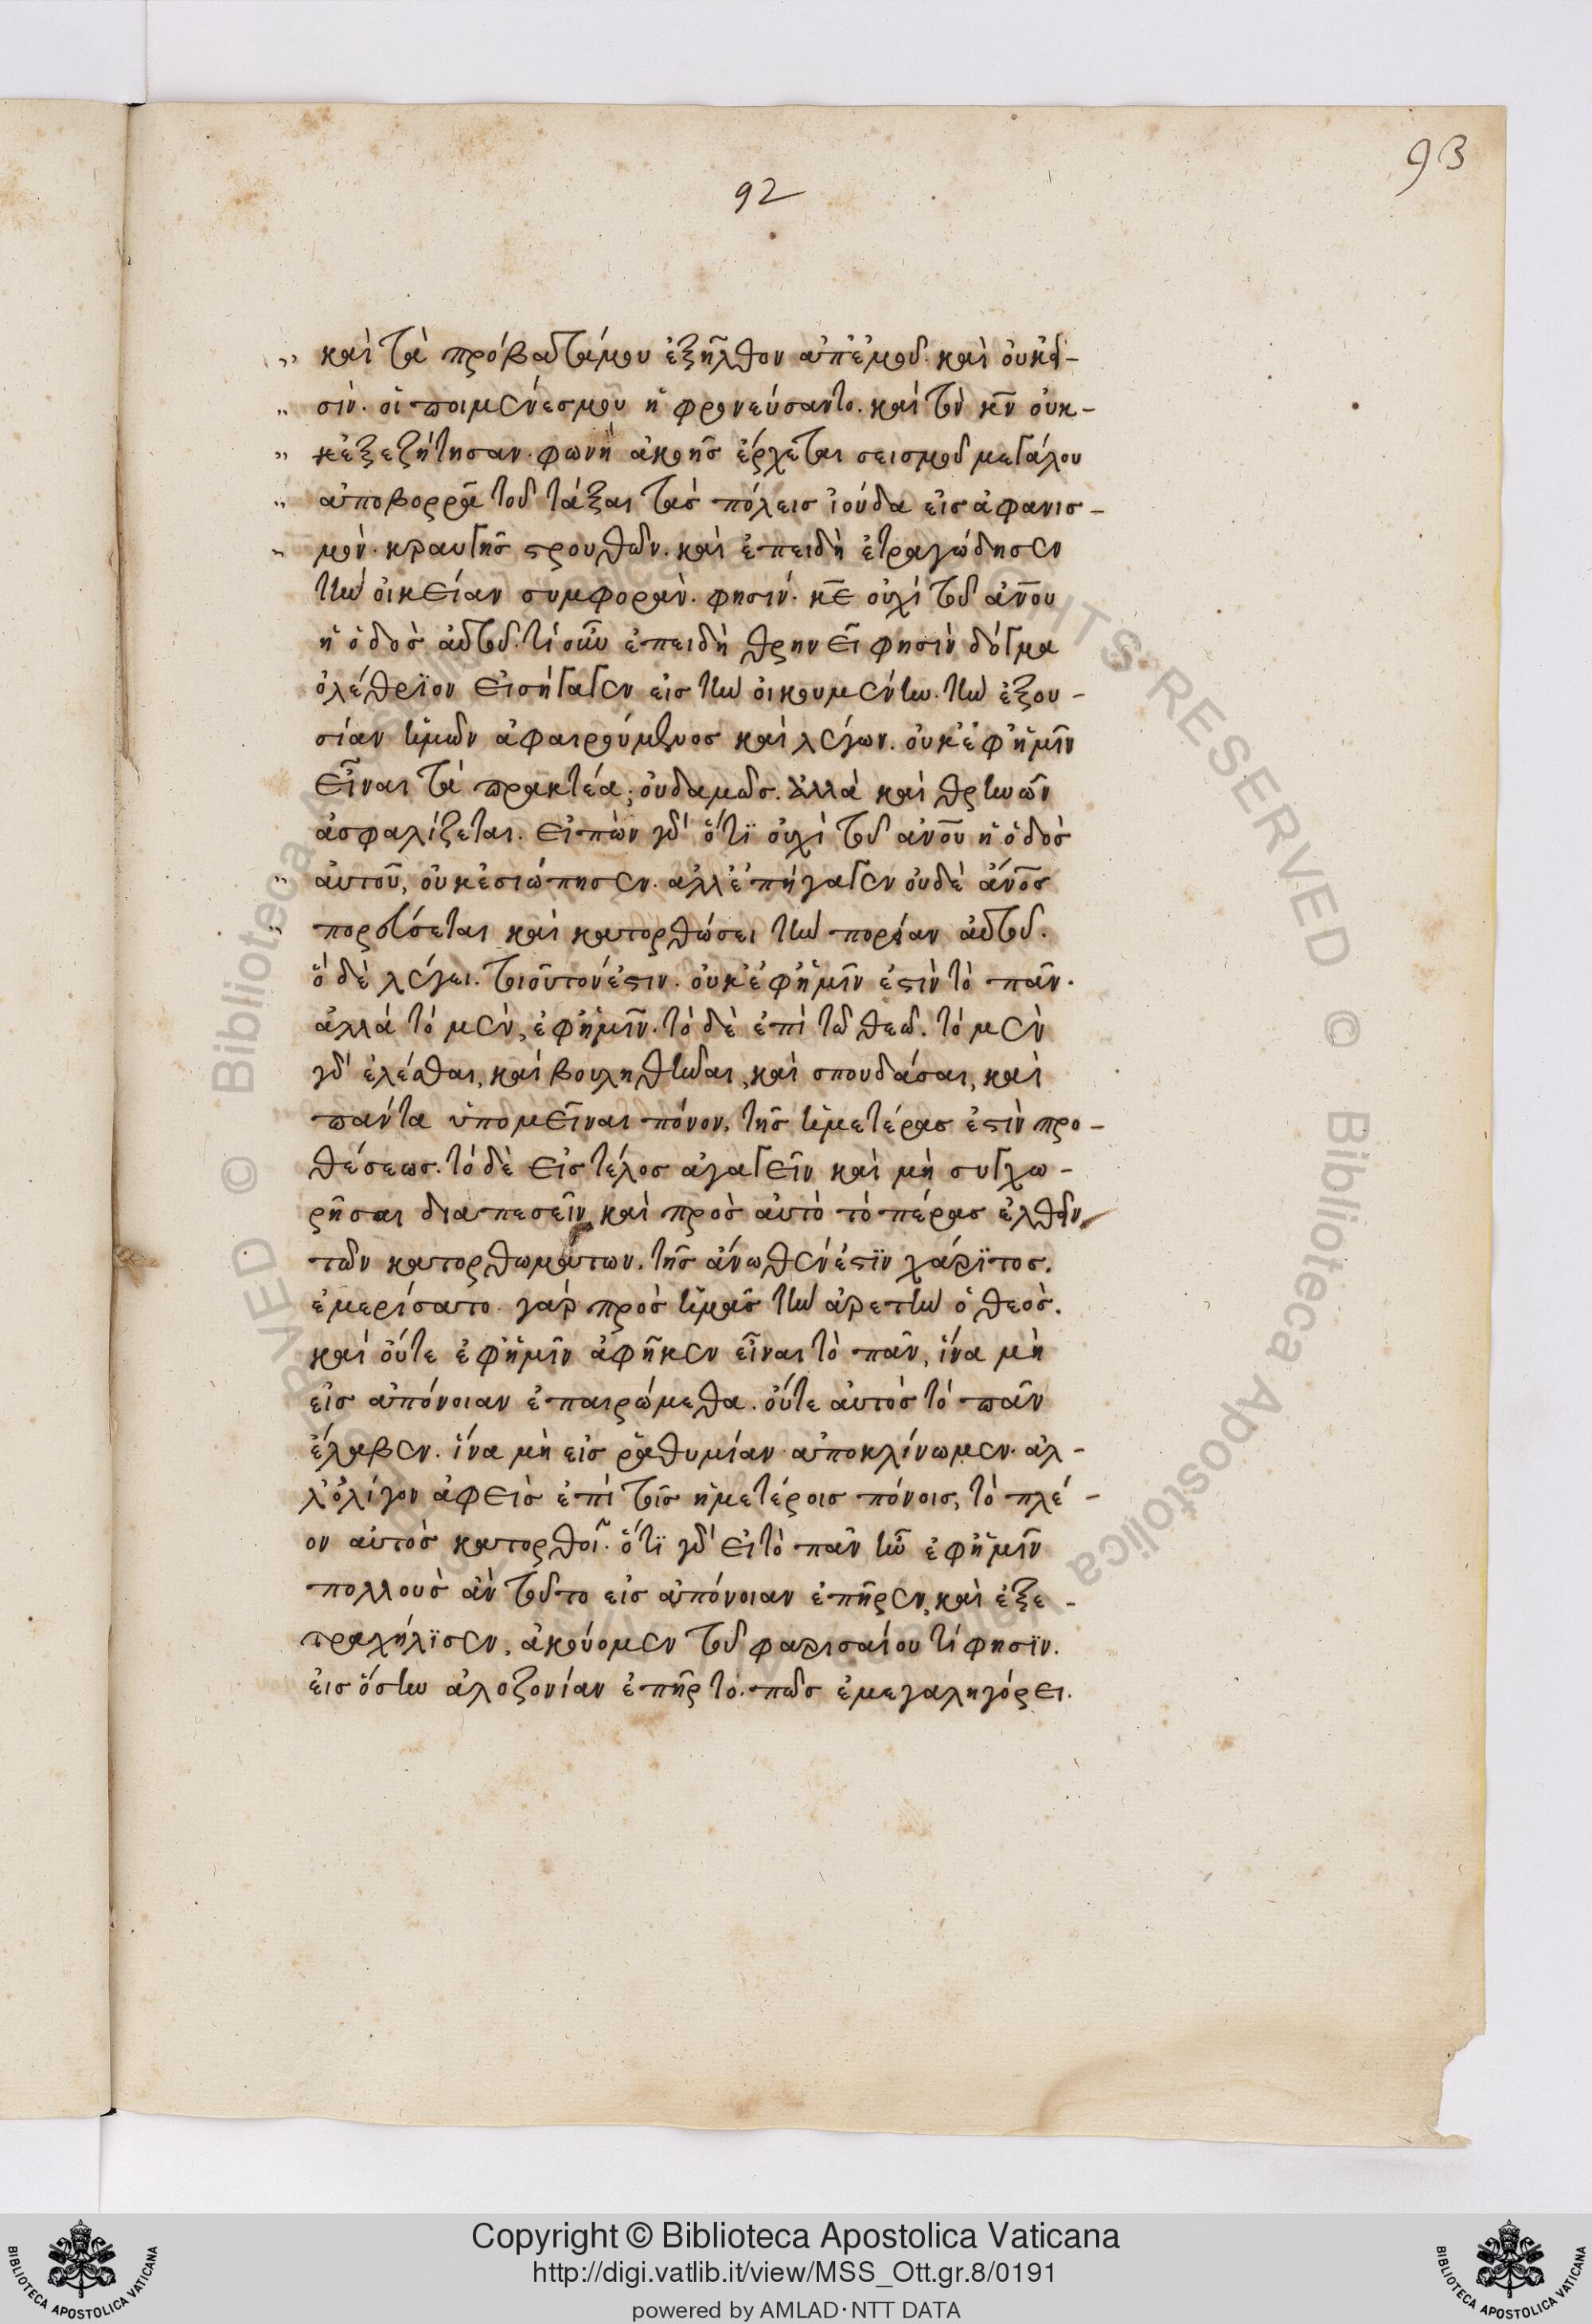 93
92
καὶ τὰ πρόβατά μου ἐξῆλθον ἀπ' ἐμοῦ. καὶ οὐκ εἰ-
σίν. οἱ ποιμένες μου ἠφρονεύσαντο. καὶ τὸν κν̅ οὐκ-
κ ἐξεζήτησαν. φωνὴ ἀκοῆς ἔρχεται σεισμοῦ μεγάλου
ἀπο βορρᾶ τοῦ τάξαι τὰς πόλεις ἰούδα εἰς ἀφανισ-
μὸν. κραυγῆς στρουθῶν. καὶ ἐπειδὴ ἐτραγώδησεν
τὴν οἰκείαν συμφορὰν. φησίν. κε̅ οὐχὶ τοῦ ἀνου̅
ἡ ὁδὸς αὐτοῦ. τί οὖν ἐπειδὴ θρηνεῖ φησὶν δόγμα
ὀλέθριον εἰσήγαγεν εἰς τὴν οἰκουμένην. τὴν ἐξου-
σίαν ἡμῶν ἀφαιρούμενος καὶ λέγων. οὐκ ἐφ' ἡμῖν
εἶναι τὰ πρακτέα; οὐδαμῶς. ἀλλὰ καὶ θρηνῶν
ἀσφαλίζεται. εἰπὼν γὰρ ὅτι οὐχὶ τοῦ ἀνου̅ ἡ ὁδὸς
αὐτοῦ, οὐκ ἐσιώπησεν. ἀλλ' ἐπήγαγεν οὐδὲ ἄνος̅
πορεύσεται καὶ κατορθώσει τὴν πορείαν αὐτοῦ.
ὃ δὲ λέγει. τοιοῦτον ἐστιν. οὐκ ἐφ' ἡμῖν ἐστὶν τὸ πᾶν.
ἀλλὰ τὸ μὲν, ἐφ' ἡμῖν. τὸ δὲ ἐπὶ τῶ θεῶ. τὸ μὲν
γὰρ ἑλέσθαι, καὶ βουληθῆναι, καὶ σπουδάσαι, καὶ
πάντα ὑπομεῖναι πόνον, τῆς ἡμετέρας ἐστὶν προ-
θέσεως. τὸ δὲ εἰς τέλος ἀγαγεῖν καὶ μὴ συγχω-
ρῆσαι διαπεσεῖν καὶ πρὸς αὐτὸ τὸ πέρας ἐλθεῖν
τῶν κατορθωμάτων. τῆς ἄνωθεν ἐστὶν χάριτος.
ἐμερίσατο γὰρ πρὸς ἡμᾶς τὴν ἀρετὴν ὁ θεὸς.
καὶ οὔτε ἐφ' ἡμῖν ἀφῆκεν εἶναι τὸ πᾶν, ἵνα μὴ
εἰς ἀπόνοιαν ἐπαιρώμεθα. οὔτε αὐτὸς τὸ πᾶν
ἔλαβεν. ἵνα μὴ εἰς ῥᾳθυμίαν ἀποκλίνωμεν. ἀλ-
λ' ὀλίγον ἀφεὶς ἐπὶ τοῖς ἡμετέροις πόνοις, τὸ πλέ-
ον αὐτὸς κατορθοῖ. ὅτι γὰρ εἰ τὸ πᾶν ἦν ἐφ' ἡμῖν
πολλοὺς ἂν τοῦτο εἰς ἀπόνοιαν ἐπῆρεν, καὶ ἐξε-
τραχήλισεν, ἀκούομεν τοῦ φαρισαίου τί φησιν.
εἰς ὅσην ἀλοζονίαν ἐπῆρτο. πῶς ἐμεγαληγόρει.
Copyright © Biblioteca Apostolica Vaticana
http://digi.vatlib.it/view/MSS_Ott.gr.8/0191
powered by AMLAD·NTT DATA
BIBLIOTECA APOSTOLICA VATICANA
BIBLIOTECA APOSTOLICA VATICANA